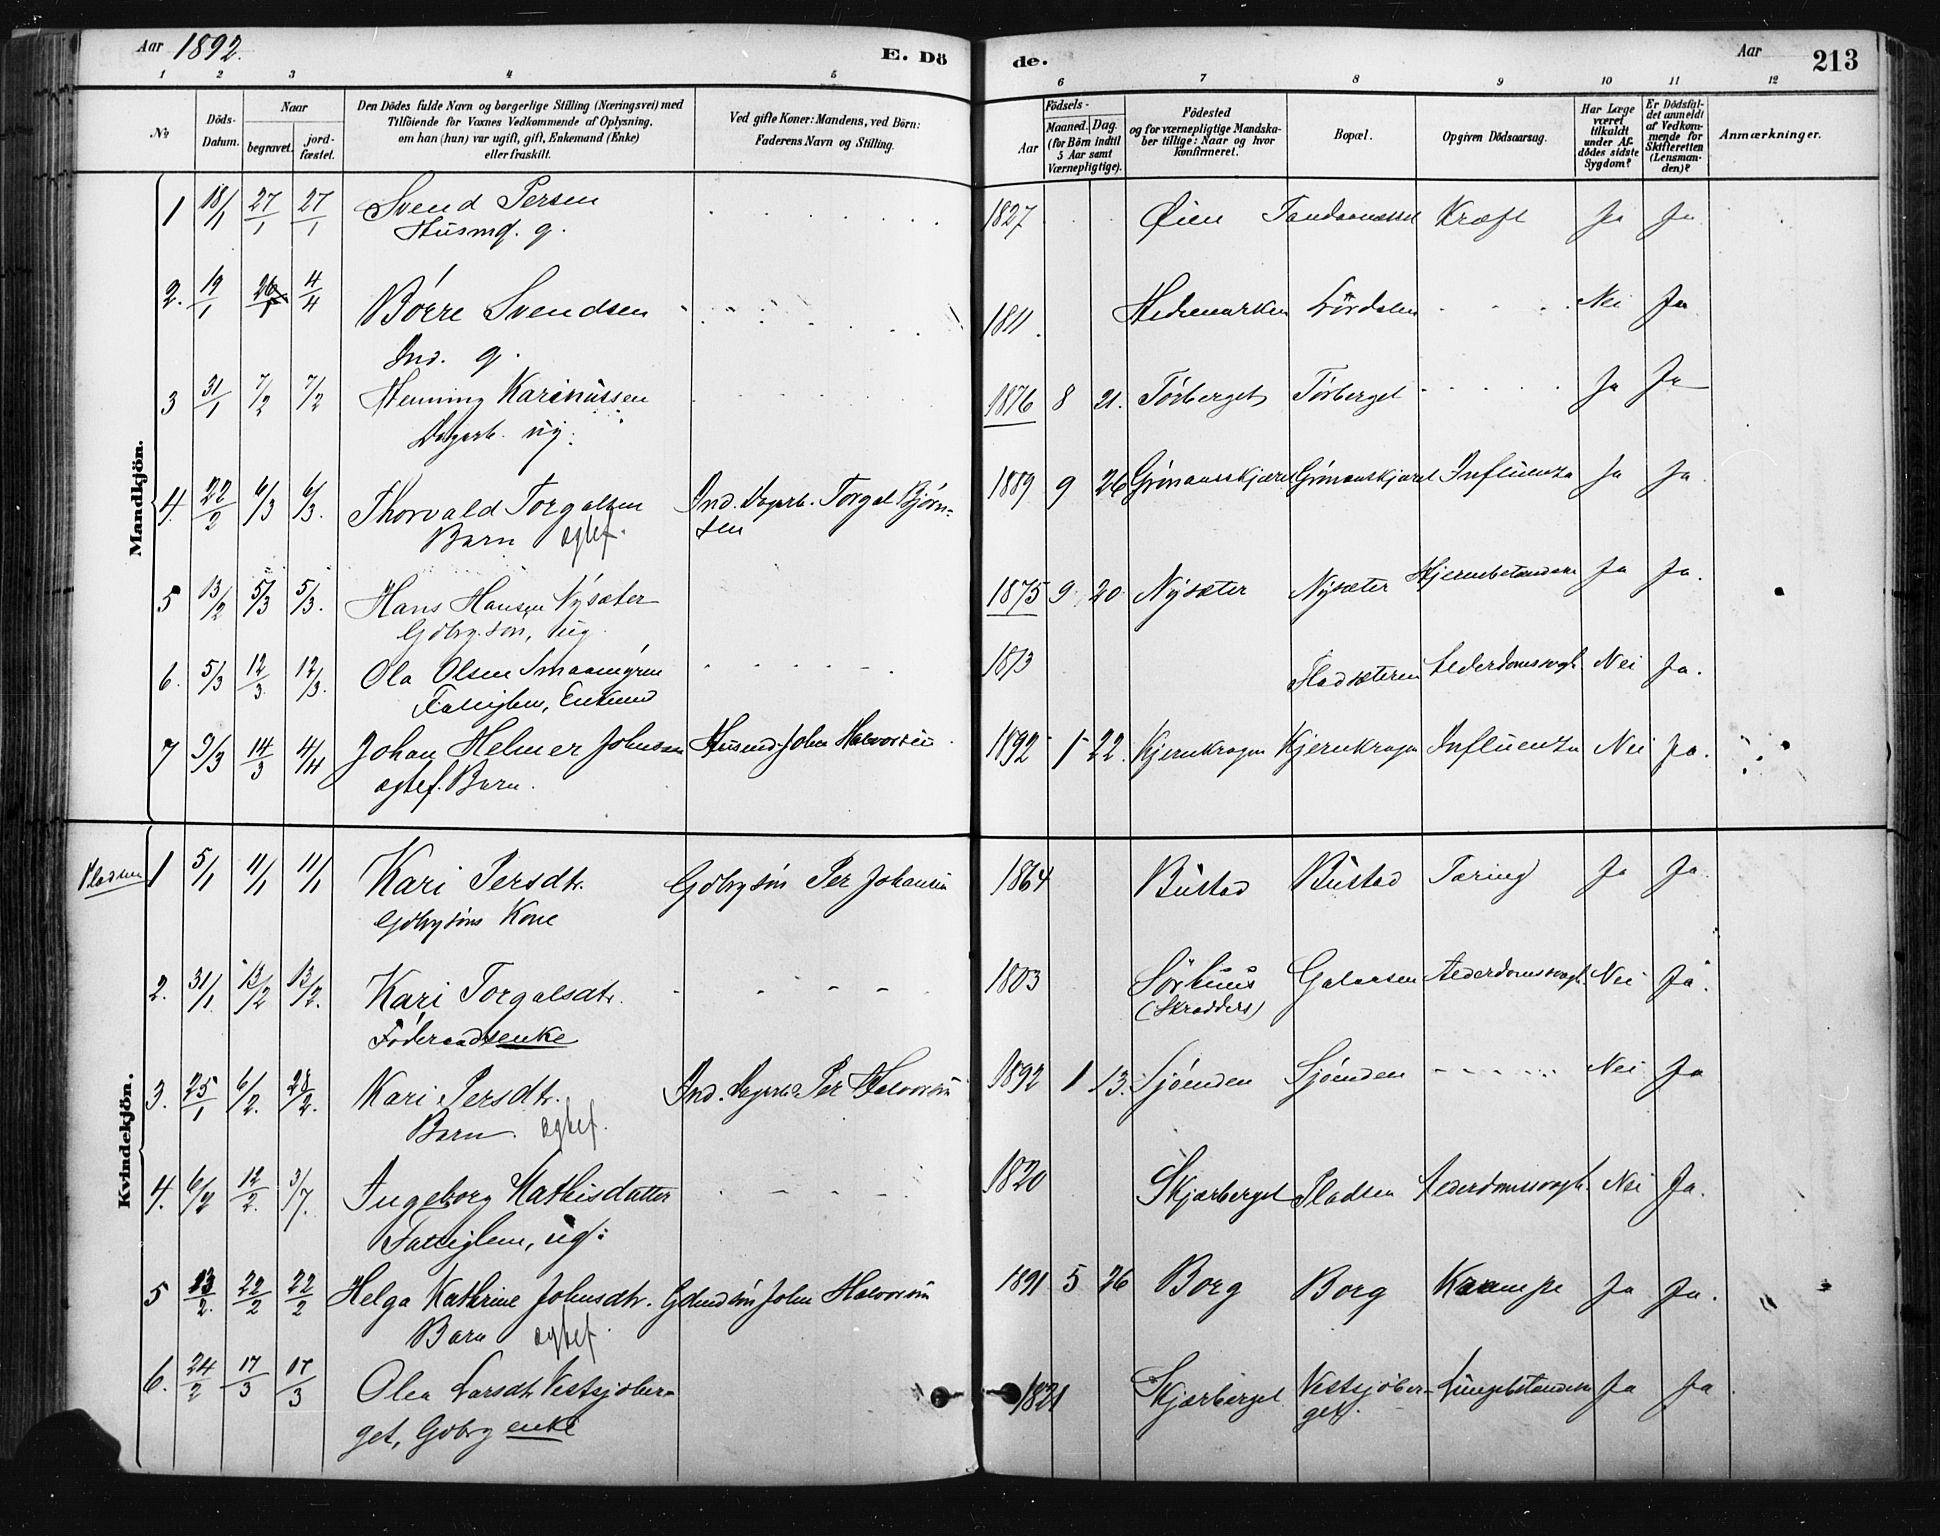 Aar 1892. E. Dö de. Aar 213
1 2 3 4 5 6 7 8 9 10 11 12
No
Döds-Datum.
Naar
begravet.
jord-fæstet.
Den Dödes fulde Navn og borgerlige Stilling (Næringsvei) med
Tilföiende for Voxnes Vedkommende af Oplysning,
om han (hun) var ugift, gift, Enkemand (Enke)
eller fraskilt.
Ved gifte Koner: Mandens, ved Börn:
Faderens Navn og Stilling.
Födsels-
Aar
Maaned. Dag.
(for Börn indtil
5 Aar samt
Værnepligtige).
Födested
og for værnepligtige Mandska-
ber tillige: Naar og hvor
konfirmeret.
Bopæl.
Opgiven Dödsaarsag.
Har Læge
været
tilkaldt
under Af-
dödes sidste
Sygdom?
Er Dödsfal-
det anmeldt
af Vedkom-
mende for
Skifteretten
(Lensman-
den)?
Anmærkninger.
Mandkjön.
1 18/1 27/1 27/1 Svend Persen 1827 Øien Kræft Ja Ja
Husmd. g.
2. 19/1 4/4 Börre Svendsen 1811. Hedemarken Lördalen Nei Ja
Ind. g.
3 31/1 7/2 7/2 Henning Karinussen 1876 8 21. Törberget Törberget Ja Ja
Dagarb. ug.
4. 22/2 6/3 6/3. Thorvald Torgalsen Ind. Dagarb. Torgal Björn- 1889 9 26 Grönæsskjæret Grönæsskjæret Influenza Ja Ja.
sen
Barn ægtef.
5 13/2 5/3 5/3. Hans Hansen Nysæter 1875 9 20 Nysæter Nysæter Hjernebetændelse Ja Ja.
Gdbrg.sön, ug.
6. 5/3 12/3 12/3. Ola Olsen Smaamyren 1813 Fladsæteren Alderdomssvagh. Nei Ja.
Fattiglem, Enkemd
7 9/3 14/3 4/4 Johan Helmer Johnsen Husmd. John Halvorsen 1892 1 22. Kjernkragen Kjernkragen Influenza Nei Ja.
ægtef. Barn.
Kvindekjön.
Pladsen 1 5/1 11/1 11/1 Kari Persdtr. Gdbrgsön Per Johansen 1864 Bustad Bustad Tæring Ja Ja.
Gdbrgsöns Kone
2. 31/1 13/2 13/2. Kari Torgalsdtr. 1803 Sörhuus Galaasen Alderdomssvagh. Nei Ja.
(Skrædders)
Föderaadsenke
3. 25/1 6/2. 28/2. Kari Persdtr. Ind. Dagarb. Per Halvorsen 1892 1 13. Sjöenden Sjöenden Nei Ja
Barn. ægtef.
4. 6/2 12/2. 3/7. Ingeborg Mathisdatter 1820 Skjærberget Pladsen Alderdomssvagh. Nei Ja.
Fattiglem, ug.
5 13/2. 22/2 22/2 Helga Kathrine Johnsdtr. Gdmdsön John Halvorsen 1891 5 26 Borg Borg Krampe Ja Ja.
Barn ægtef.
6. 24/2 17/3 17/3 Olea Larsdtr. Vestsjöber- 1821 Skjærberget Vestsjöber- Lungebetændelse Ja Ja
get.
get, Gdbrgenke